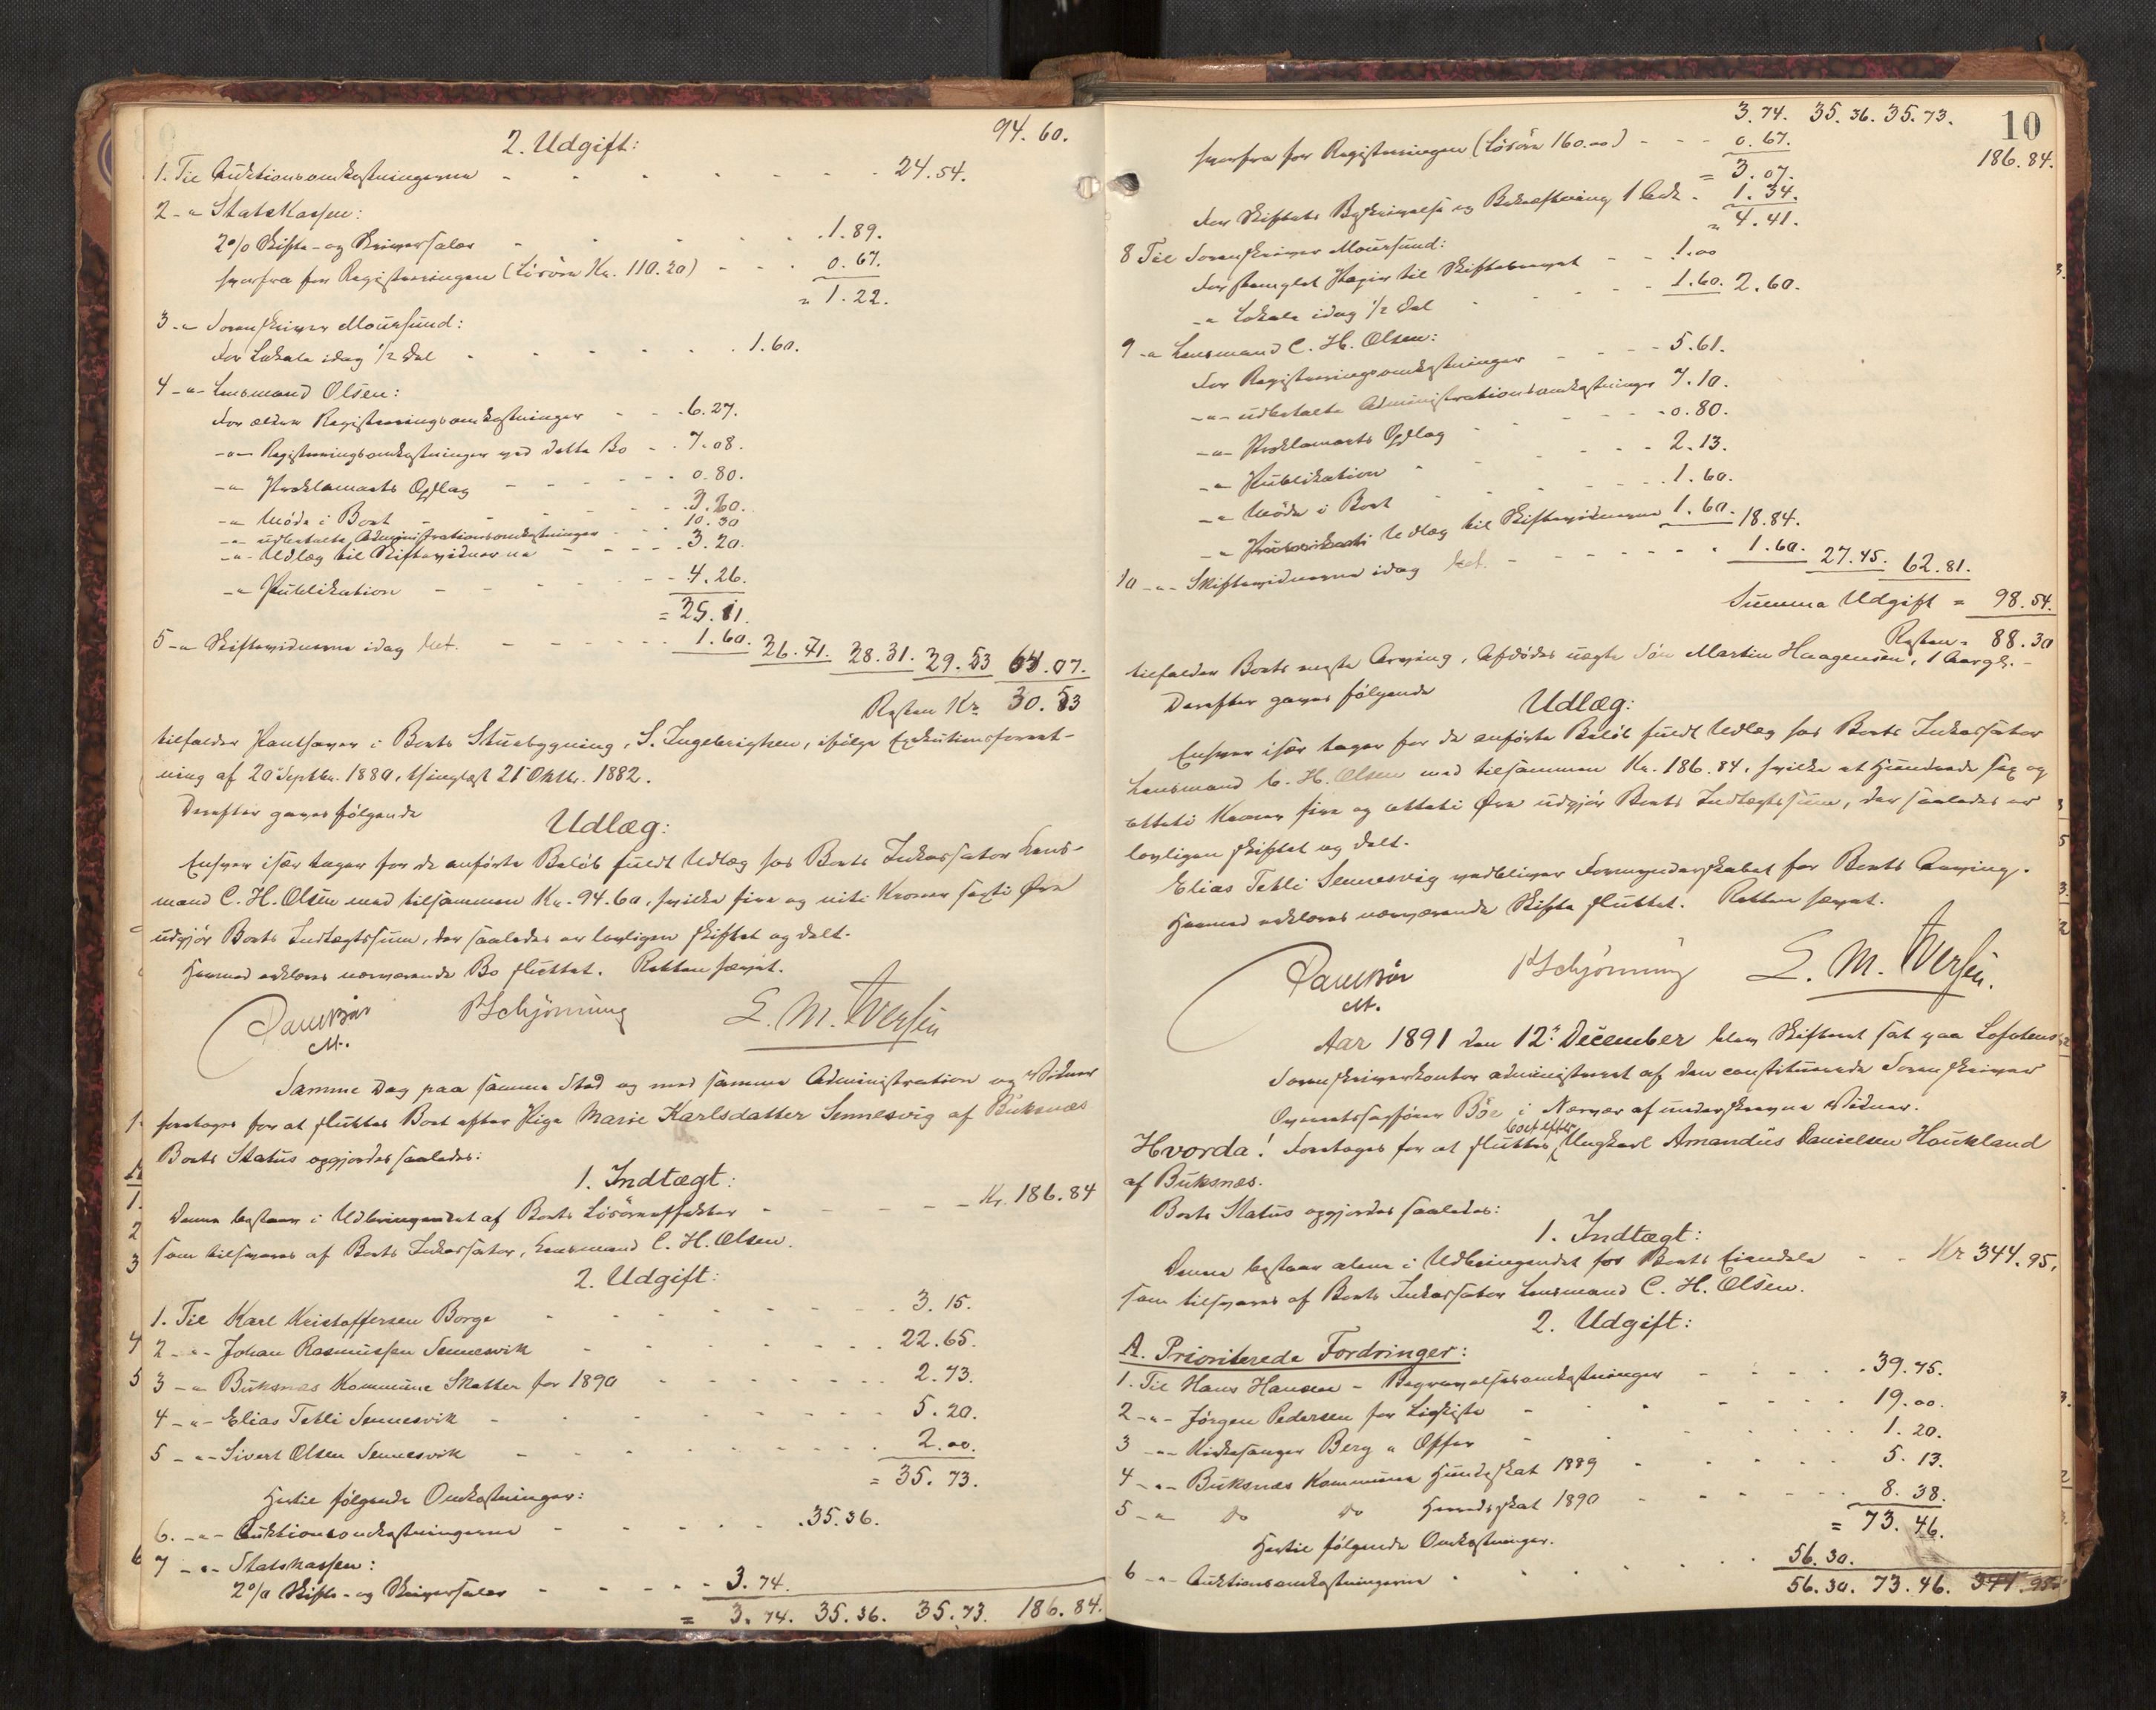 94.60.
2. Udgift:
1. Til Auktionsomkostningerne - - - 24.54.
2 -"- Statskassen:
2% Skifte- og Skriversalær - - - 1.89.
herfra for Registreringen (Lösöre Kr. 110.20) - - - 0.67.
" 1.22.
3 -"- Sorenskriver Moursund:
For Lokale idag 1/2 Del - - - 1.60.
4 -"- Lensmand Olsen:
For ældre Registreringsomkostninger - - 6.27.
-"- Registreringsomkostninger ved dette Bo - 7.08.
-"- Proklamaets Opslag - - - 0.80.
-"- Möde i Boet - - - 3.20.
-"- udbetalte Administrationsomkostninger - - 10.30
-"- Udlæg til Skiftevidnerne - - - 3.20.
-"- Publikation - - - 4.26.
= 25.11.
5 -"- Skiftevidnerne idag - - - 1.60. 26.71. 28.31. 29.53 64.07.
Resten Kr. 30.53
tilfalder Panthaver i Boets Stuebygning, S. Ingebrigtsen, ifölge Exekutionsforret-
ning af 20 Septbr. 1880, thinglæst 21 Oktbr. 1882.
Derefter gaves fölgende
Udlæg:
Enhver især tager for de anförte Belöb fuldt Udlæg hos Boets Inkassator Lens-
mand C. H. Olsen med tilsammen Kr. 94.60, hvilke fire og niti Kroner sexti Øre
udgjör Boets Indtægtssum, der saaledes er lovligen skiftet og delt.
Hermed erklæres nærværende Bo sluttet. Retten hævet.
Paul Böe
cst.
P Schjönning
L. M. Iversen
Samme Dag paa samme Sted og med samme Administration og Vidner
foretoges for at sluttes Boet efter Pige Marie Karlsdatter Sennesvig af Buksnæs
Boets Status opgjordes saaledes:
1. Indtægt:
Denne bestaar i Udbringendet af Boets Lösöreeffekter - - - Kr. 186.84
som tilsvares af Boets Inkassator, Lensmand C. H. Olsen.
2. Udgift:
1. Til Karl Kristoffersen Borge - - - 3.15.
2 -"- Johan Rasmussen Sennesvik - - - 22.65.
3 -"- Buksnæs Kommune Skatter for 1890 - - - 2.73.
4 -"- Elias Tetli Sennesvik - - - 5.20.
5 -"- Sivert Olsen Sennesvik - - - 2.00.
= 35.73.
Hertil fölgende Omkostninger:
6. -"- Auktionsomkostningerne - - - 35.36.
7 -"- Statskassen:
2% Skifte- og Skriversalær - - - 3.74.
= 3.74. 35.36. 35.73. 186.84.
10
3.74. 35.36. 35.73.
186.84.
herfra for Registreringen (Lösöre 160.00) - - - 0.67.
= 3.07.
For Skiftets Beskrivelse og Bekræftning 1 Ark - 1.34.
" 4.41.
8 Til Sorenskriver Moursund:
For stemplet Papir til Skiftebrevet - - 1.00
-"- Lokale idag 1/2 Del - - - 1.60. 2.60.
9 -"- Lensmand C. H. Olsen:
For Registreringsomkostninger - - - 5.61.
-"- udbetalte Administrationsomkostninger 7.10.
-"- Proklamaets Opslag - - - 0.80.
-"- Publikation - - - 2.13.
-"- Möde i Boet - - - 1.60.
-"- Udlæg til Skiftevidnerne 1.60. 18.84.
10 -"- Skiftevidnerne idag - - - 1.60. 27.45. 62.81.
Summa Udgift = 98.54.
Resten " 88.30
tilfalder Boets eneste Arving, Afdödes uægte Sön Martin Haagensen, 1 Aar gl. -
Derefter gaves fölgende
Udlæg:
Enhver især tager for de anförte Belöb fuldt Udlæg hos Boets Inkassator
Lensmand C. H. Olsen med tilsammen Kr. 186.84, hvilke et Hundrede sex og
otteti Kroner fire og otteti Øre udgjör Boets Indtægtssum, der saaledes er
lovligen skiftet og delt.
Elias Tetli Sennesvig vedbliver Formynderskabet for Boets Arving.
Hermed erklæres nærværende Skifte sluttet. Retten hævet.
Paul Böe
cst.
P Schjönning
L. M. Iversen.
Aar 1891 den 12' December blev Skifteret sat paa Lofotens
Sorenskriverkontor administreret af den constituerede Sorenskriver
Overretssagförer Böe i Nærvær af underskrevne Vidner.
Hvorda! Foretoges for at sluttes Boet efter Ungkarl Amandus Danielsen Haukland
af Buksnæs.
Boets Status opgjordes saaledes:
1. Indtægt:
Denne bestaar alene i Udbringendet for Boets Eiendele - - Kr 344.95,
som tilsvares af Boets Inkassator Lensmand C. H. Olsen.
2. Udgift:
A. Prioriterede Fordringer:
1. Til Hans Hansen - Begravelsesomkostninger - - - 39.75.
2 -"- Jörgen Pedersen for Ligkiste - - - 19.00.
3 -"- Kirkesanger Berg " Offer - - - 1.20.
4 -"- Buksnæs Kommune Hundeskat 1889 - - - 5.13.
5 -"- Do Do Hundeskat 1890 - - - 8.38.
= 73.46.
Hertil fölgende Omkostninger.
6 -"- Auktionsomkostningerne - - - 56.30.
56.30. 73.46. 344.95